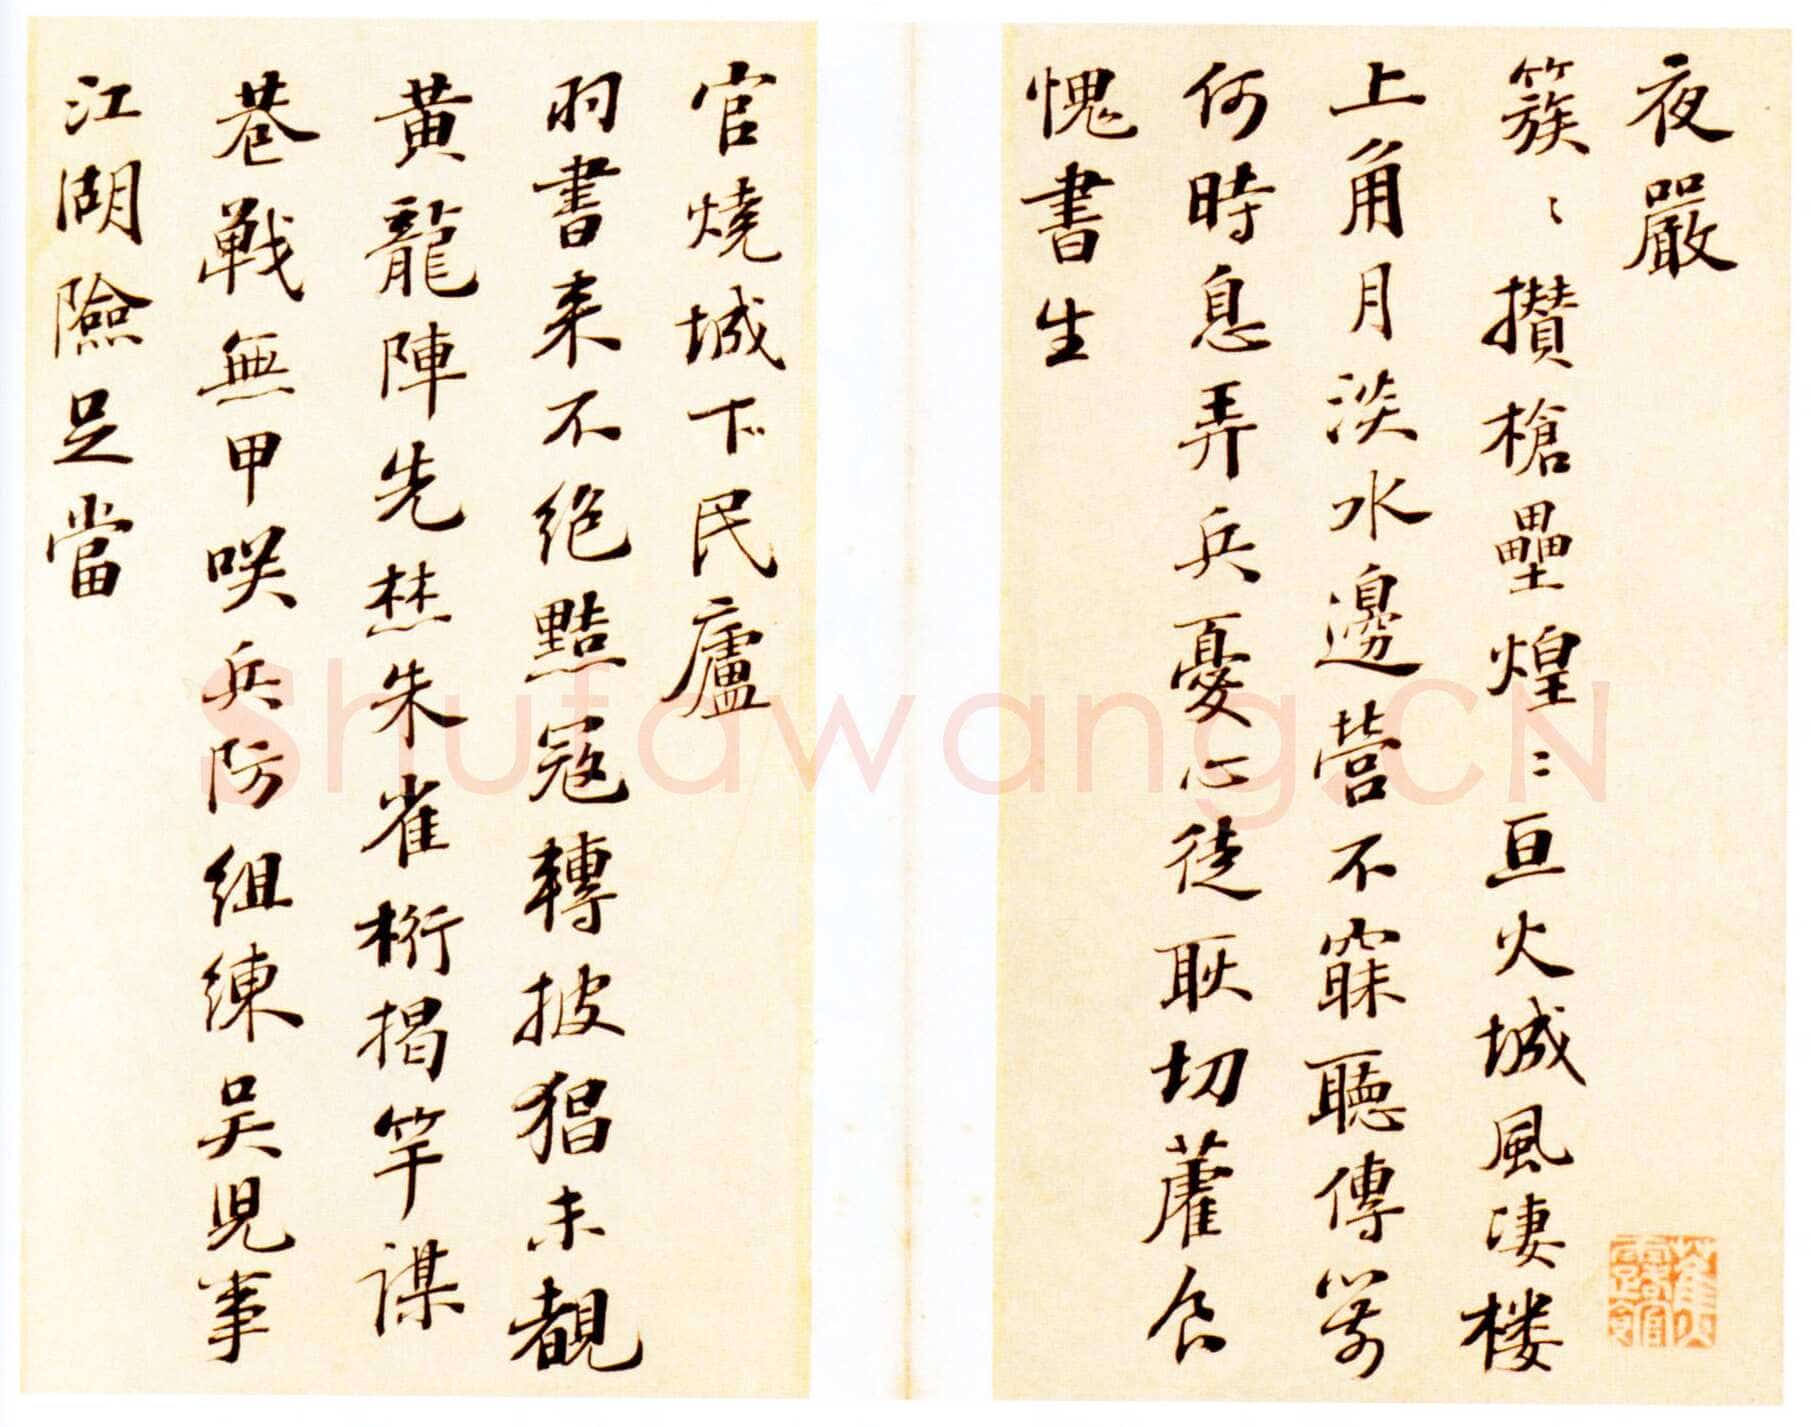 夜嚴
簇〻攢槍壘煌〻亘火城風凄楼
上角月淡水邊營不寐聽傳籌
何時息弄兵憂心徒耿切藿食
愧書生
官燒城下民廬
羽書来不绝黠寇轉披猖未覩
黄龍陣先焚朱雀桁揭竿謀
巷戰無甲咲兵防組練吴児事
江湖險足當
Shufawang.CN